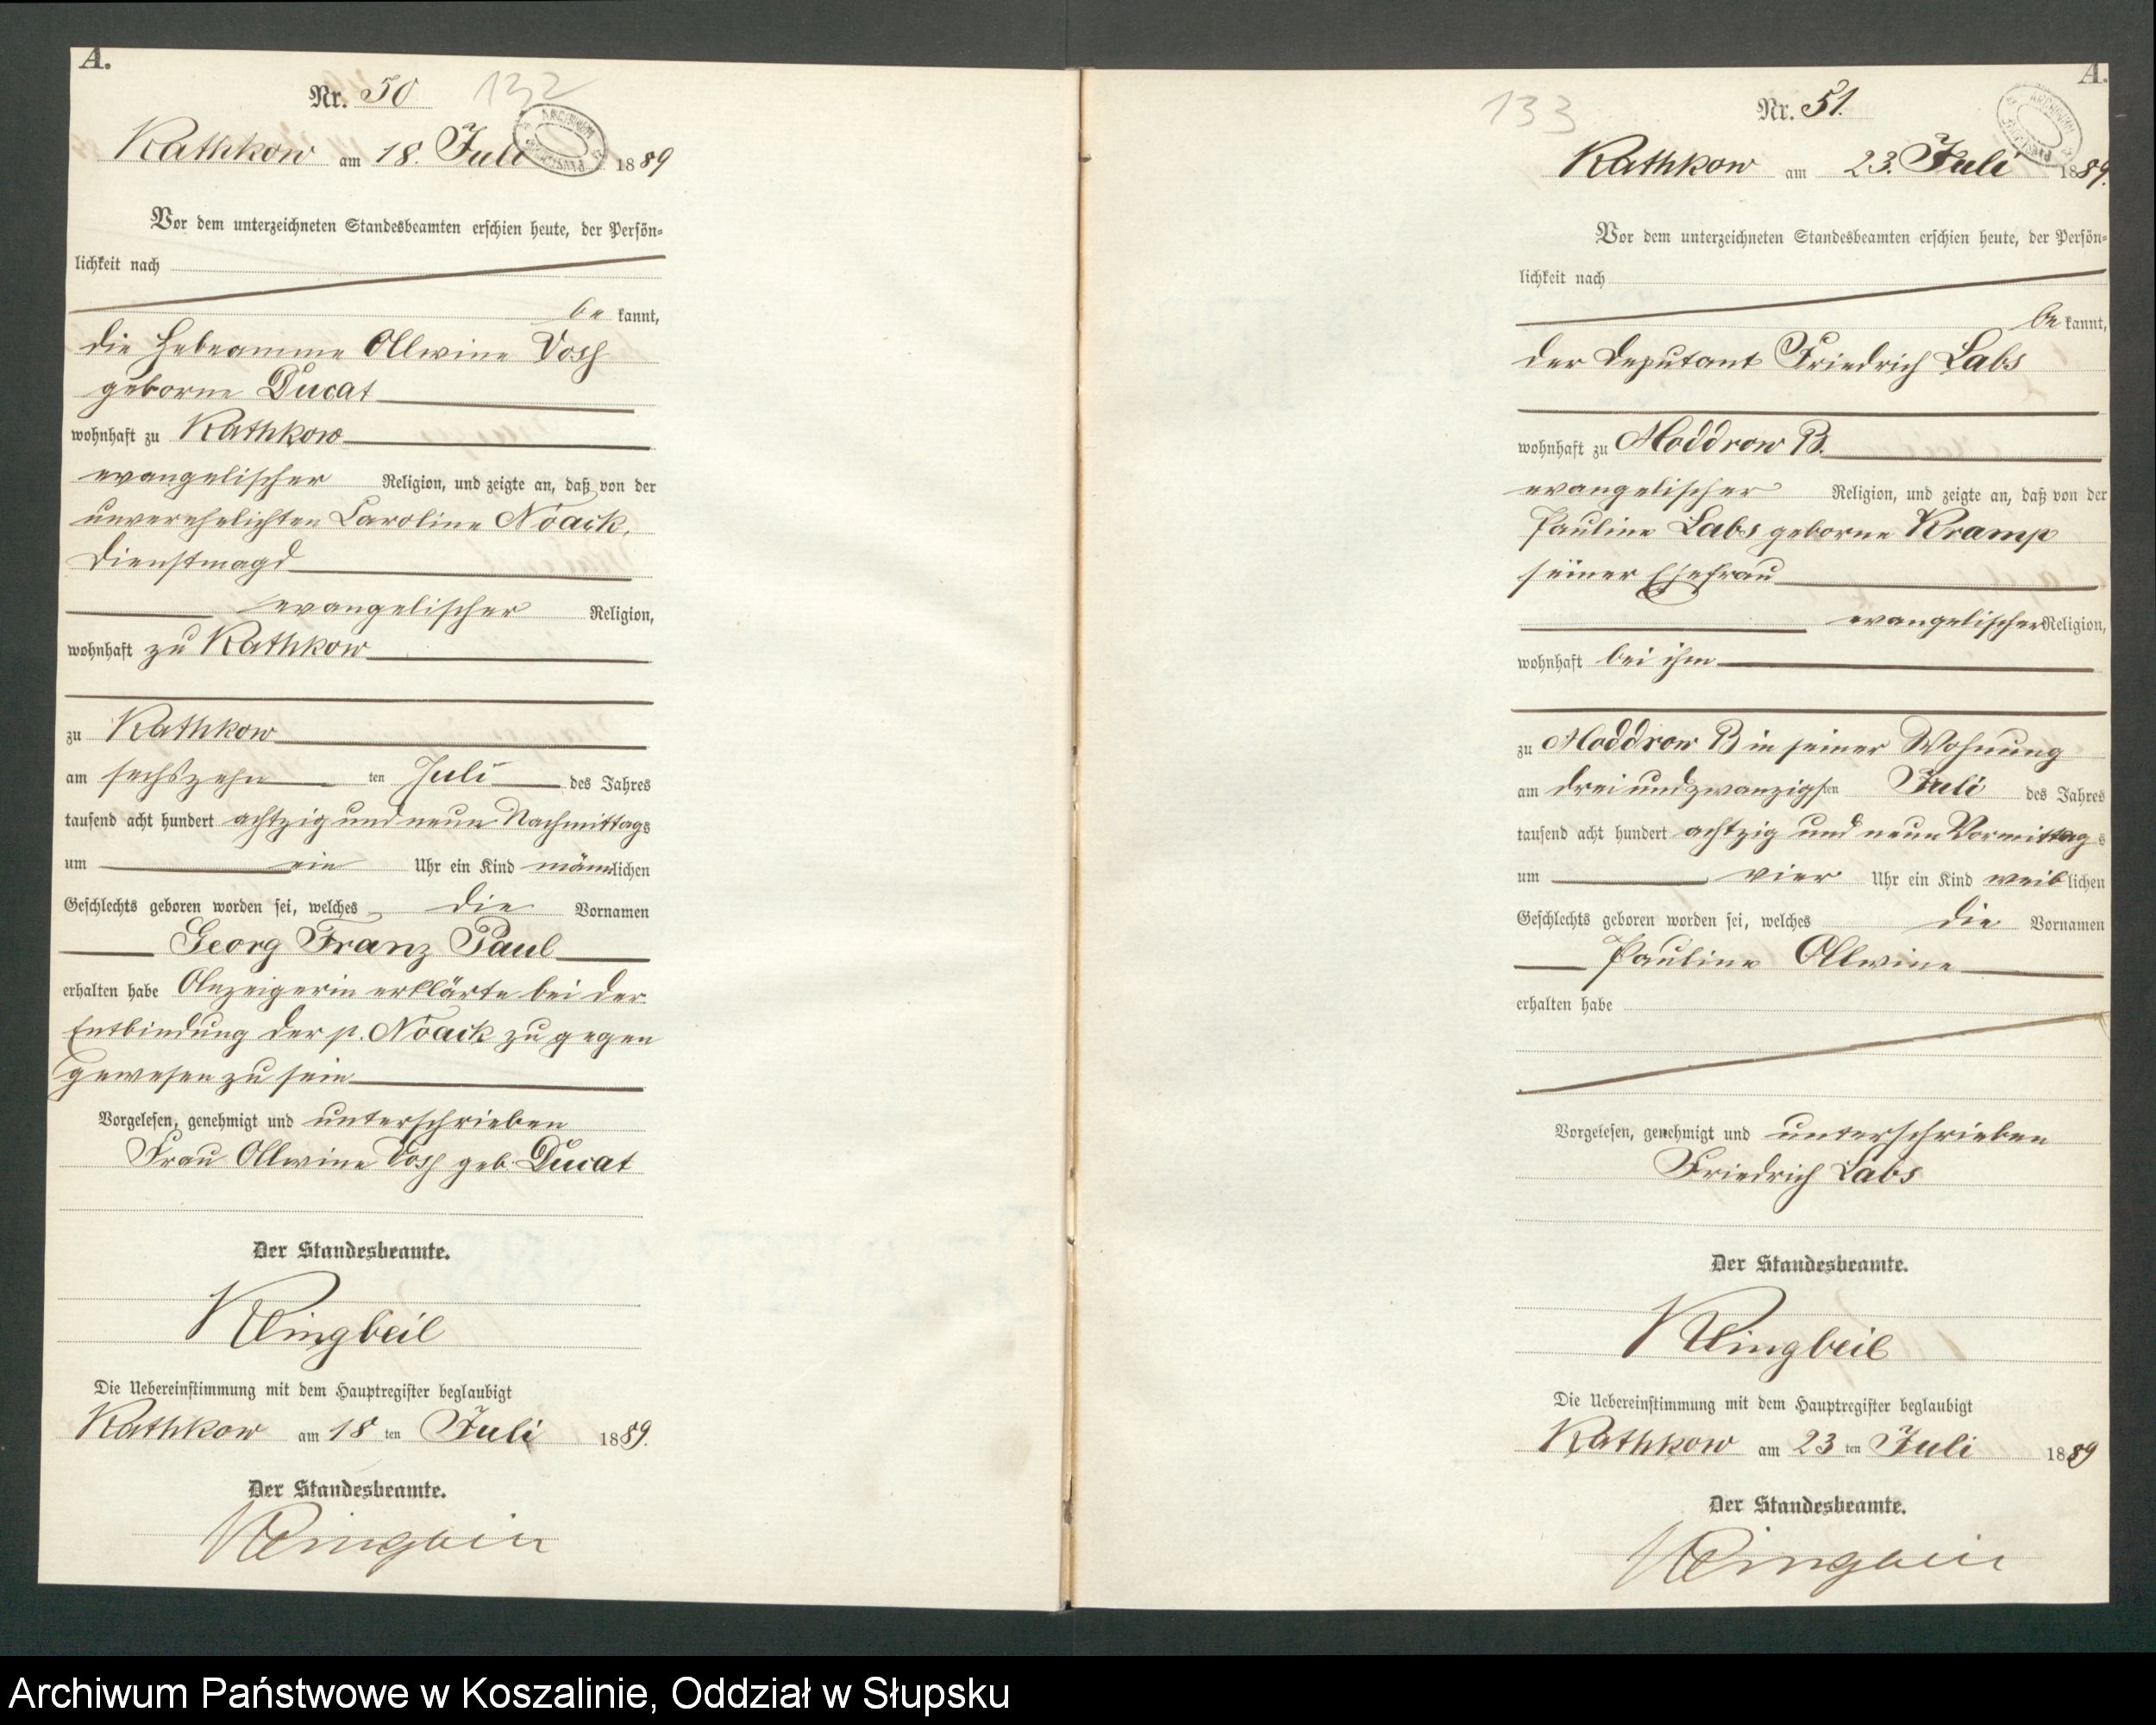 A.
Nr. 50
132
Kathkow am 18. Juli 1889
Vor dem unterzeichneten Standesbeamten erschien heute, der Persön-
lichkeit nach
be kannt,
die Hebeamme Allwine Vosß
geborne Ducat
wohnhaft zu Kathkow
evangelischer Religion, und zeigte an, daß von der
unverehelichten Caroline Noack,
Dienstmagd
evangelischer Religion,
wohnhaft zu Kathkow
zu Kathkow
am sechszehn ten Juli des Jahres
tausend acht hundert achtzig und neun Nachmittags
um ein Uhr ein Kind männlichen
Geschlechts geboren worden sei, welches die Vornamen
Georg Franz Paul
erhalten habe Anzeigerin erklärte bei der
Entbindung der p. Noack zugegen
gewesen zu sein
Vorgelesen, genehmigt und unterschrieben
Frau Allwine Vosß geb. Ducat
Der Standesbeamte.
Klingbeil
Die Uebereinstimmung mit dem Hauptregister beglaubigt
Kathkow am 18 ten Juli 1889.
Der Standesbeamte.
Klingbeil
A.
133
Nr. 51.
Kathkow am 23. Juli 1889.
Vor dem unterzeichneten Standesbeamten erschien heute, der Persön-
lichkeit nach
be kannt,
der Deputant Friedrich Labs
wohnhaft zu Moddrow B.
evangelischer Religion, und zeigte an, daß von der
Pauline Labs geborne Kramp
seiner Ehefrau
evangelischer Religion,
wohnhaft bei ihm
zu Moddrow B in seiner Wohnung
am dreiundzwanzigsten Juli des Jahres
tausend acht hundert achtzig und neun Vormittags
um vier Uhr ein Kind weiblichen
Geschlechts geboren worden sei, welches die Vornamen
Pauline Allwine
erhalten habe
Vorgelesen, genehmigt und unterschrieben
Friedrich Labs
Der Standesbeamte.
Klingbeil
Die Uebereinstimmung mit dem Hauptregister beglaubigt
Kathkow am 23 ten Juli 1889
Der Standesbeamte.
Klingbeil
Archiwum Państwowe w Koszalinie, Oddział w Słupsku